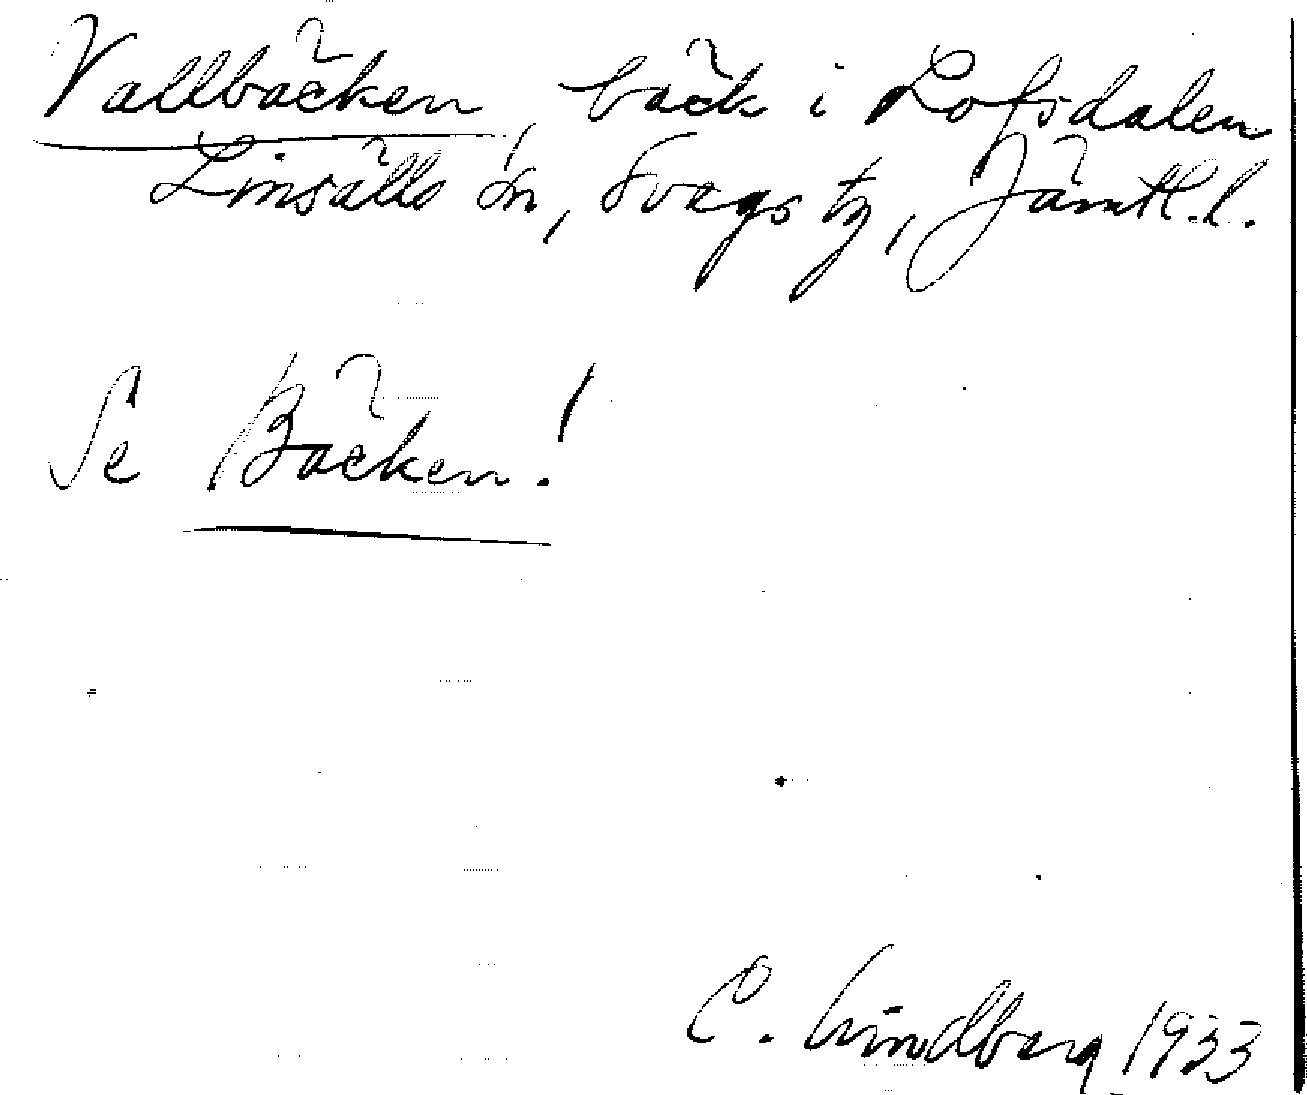 Vallbäcken, bäck i Lofsdalen
Linsälls sn, Svegs tg, Jämtl.l.
Se Bäcken!
C. Lindberg 1933